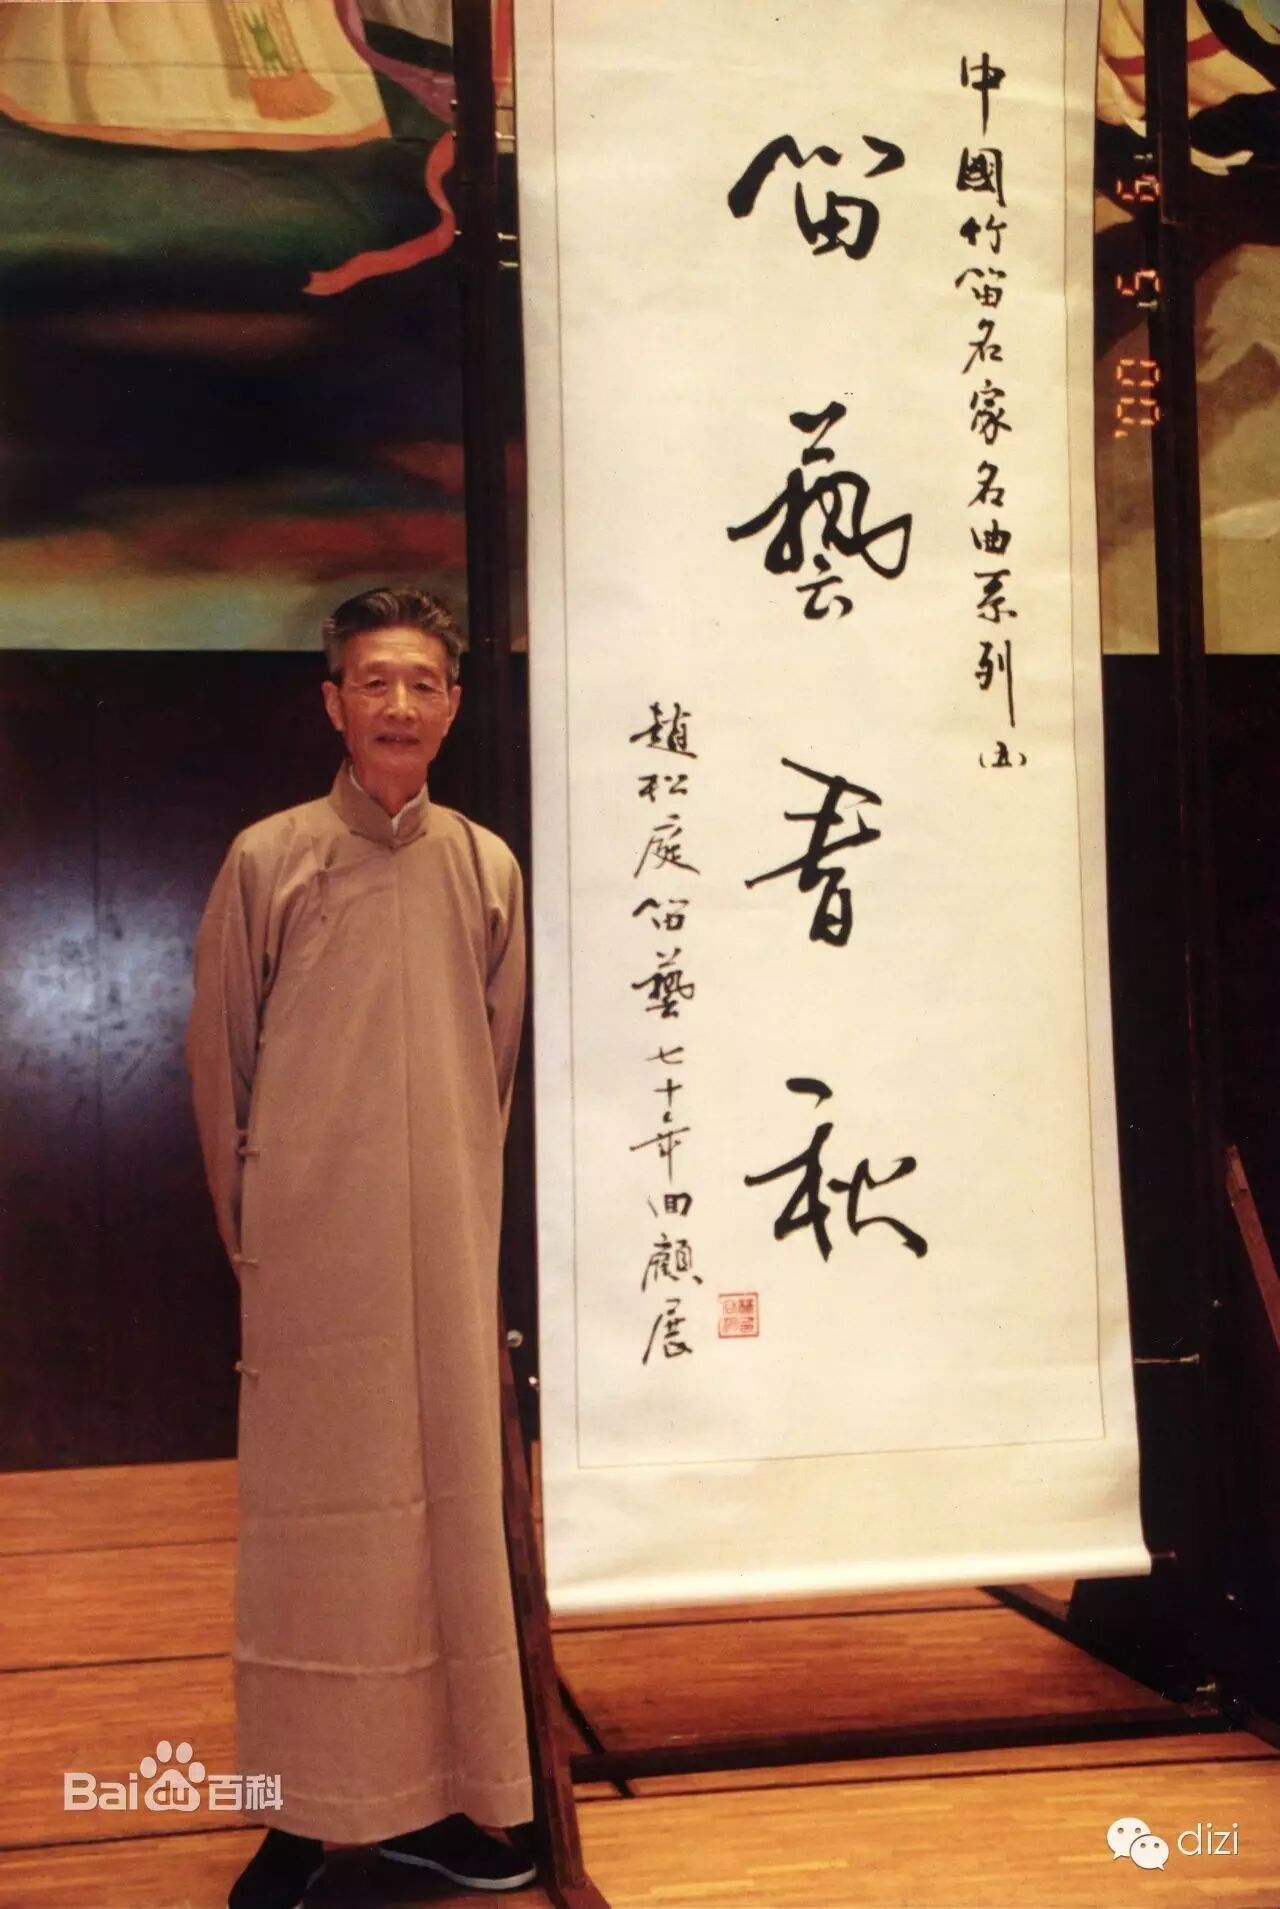 中國竹笛名家名曲系列(五)
笛藝春秋
趙松庭笛藝七十年回顧展
'00 5
Baidu百科
dizi